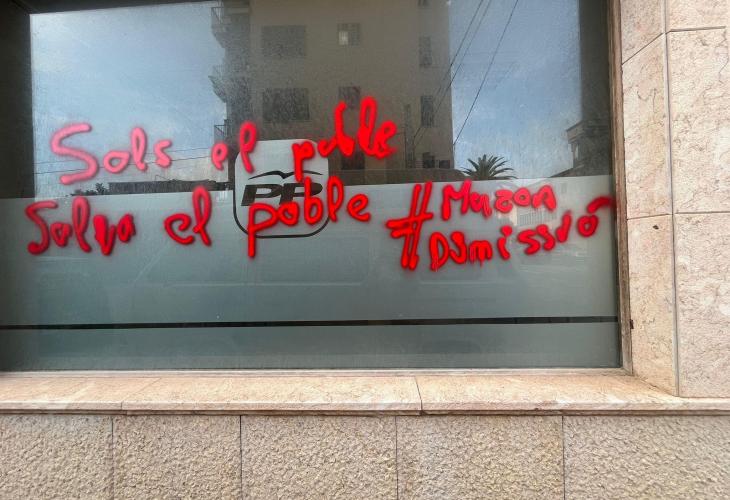 Sols el poble
PP
Salva el poble #Mazon
Dimissió